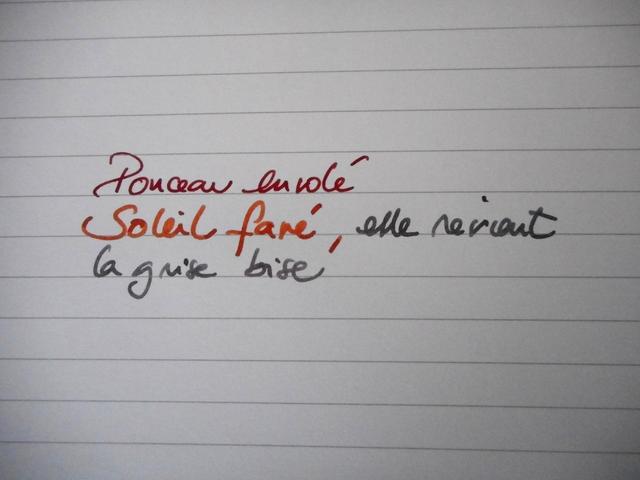 Ponceau envolé
Soleil fané, elle revient
la grise bise